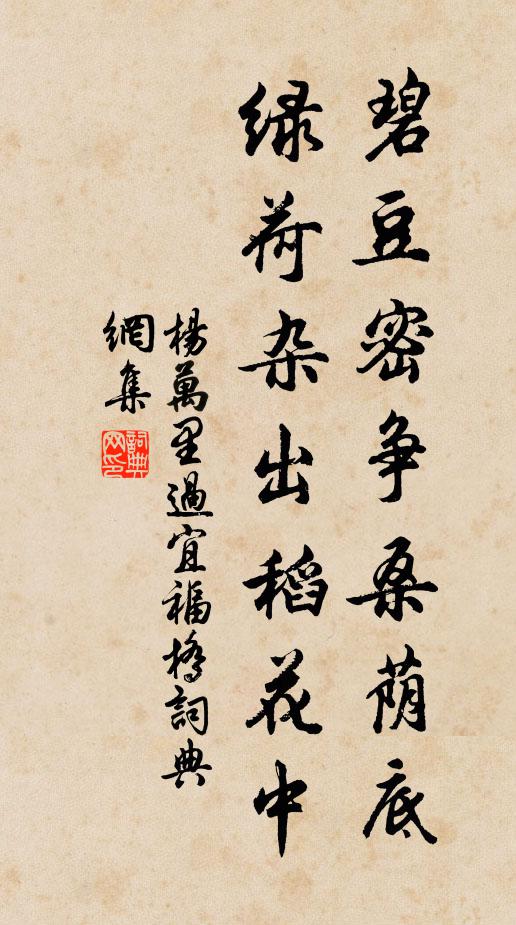 碧豆密争桑荫底
绿荷杂出稻花中
楊萬里過宜福橋詞典
網集
詞典
网印